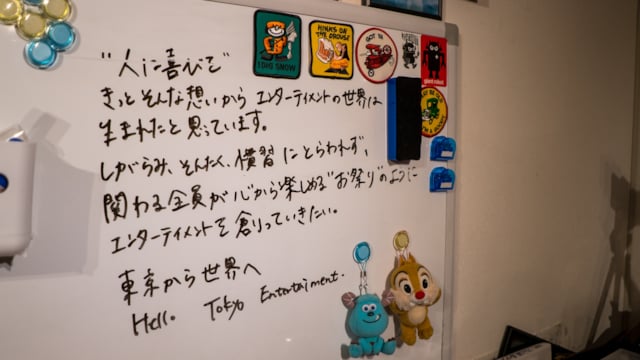 "人に喜びを"
きっとそんな想いから エンターテイメントの世界は
生まれたと思っています。
しがらみ、そんたく、慣習にとらわれず、
関わる全員が心から楽しめる"お祭り"のように
エンターテイメントを創っていきたい。
東京から世界へ
Hello Tokyo Entertaiment.
I DIG SNOW
HINKS ON THE GROUSE
GOT IN